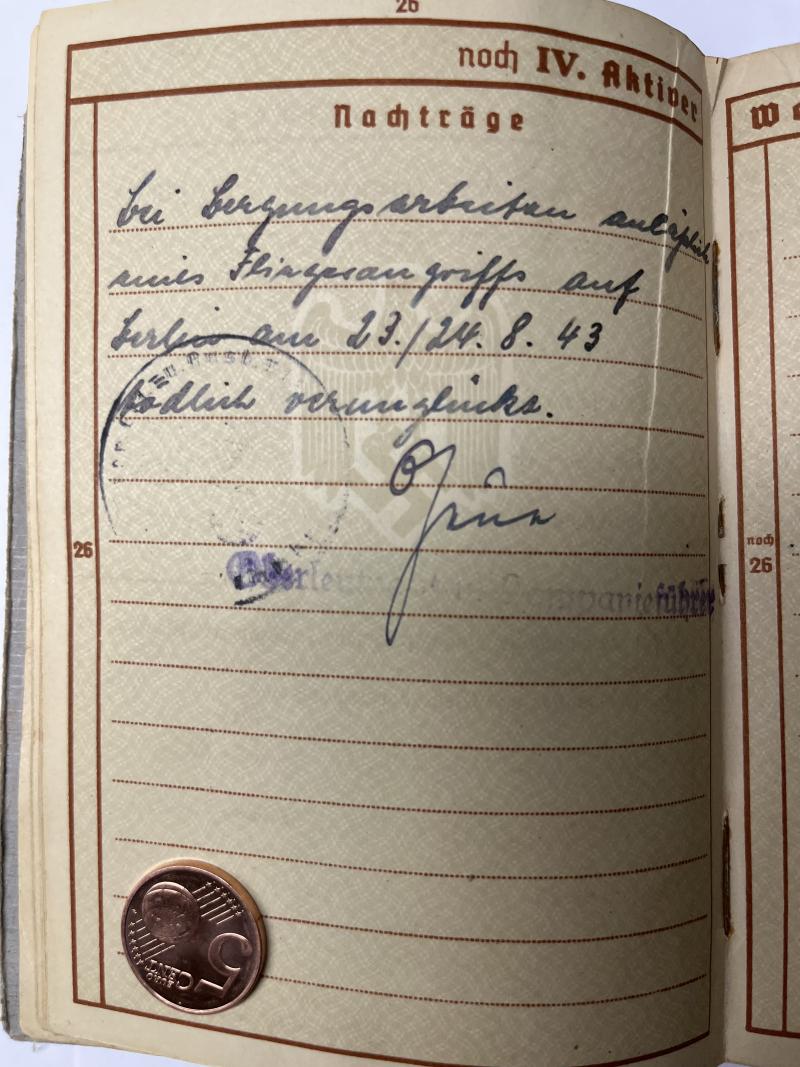 26
noch IV. Aktiver
Nachträge
bei Bergungsarbeiten anläßlich
eines Fliegerangriffs auf
Berlin am 23./24. 8. 43
tödlich verunglückt.
26
noch
26
Kompanieführer
5
EURO
CENT